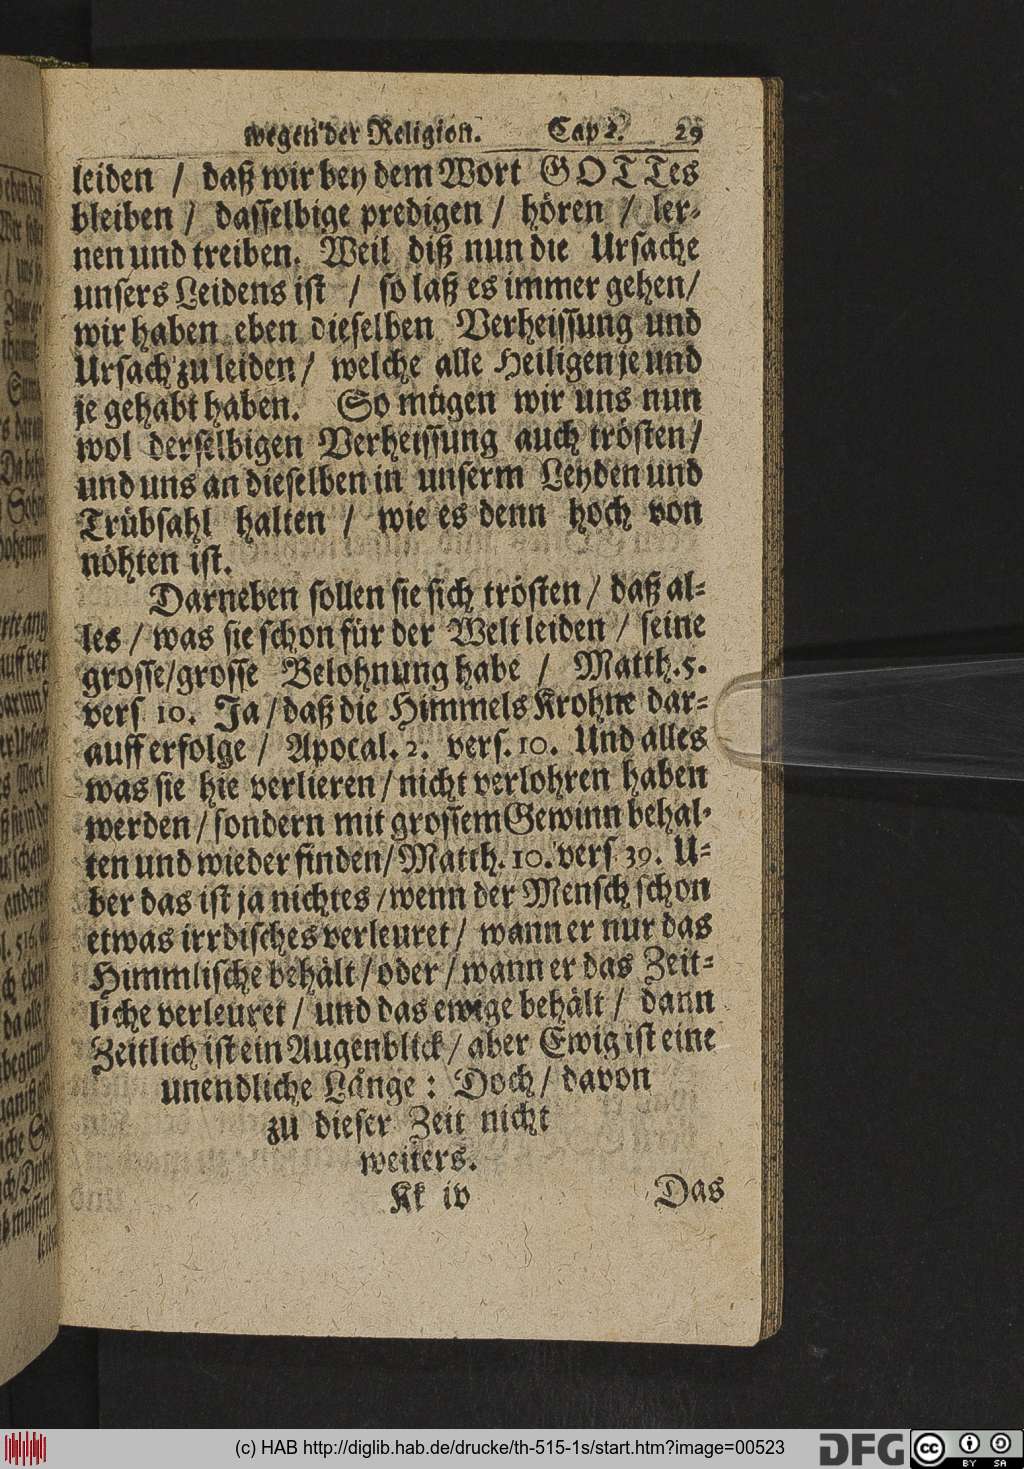 wegen der Religion. Cap 2. 29
leiden / daß wir bey dem Wort GOTTes
bleiben / dasselbige predigen / hören / ler-
nen und treiben. Weil diß nun die Ursache
unsers Leidens ist / so laß es immer gehen/
wir haben eben dieselben Verheissung und
Ursach zu leiden / welche alle Heiligen je und
je gehabt haben. So mügen wir uns nun
wol derselbigen Verheissung auch trösten/
und uns an dieselben in unserm Leyden und
Trübsahl halten / wie es denn hoch von
nöhten ist.
Darneben sollen sie sich trösten / daß al-
les / was sie schon für der Welt leiden / seine
grosse/grosse Belohnung habe / Matth.5.
vers 10. Ja / daß die Himmels Krohne dar-
auff erfolge / Apocal. 2. vers. 10. Und alles
was sie hie verlieren / nicht verlohren haben
werden / sondern mit grossem Gewinn behal-
ten und wieder finden/ Matth. 10. vers 39. U-
ber das ist ja nichtes / wenn der Mensch schon
etwas irrdisches verleuret / wann er nur das
Himmlische behält / oder / wann er das Zeit-
liche verleuret / und das ewige behält / dann
Zeitlich ist ein Augenblick / aber Ewig ist eine
unendliche Länge : Doch / davon
zu dieser Zeit nicht
weiters.
Kk iv Das
(c) HAB http://diglib.hab.de/drucke/th-515-1s/start.htm?image=00523
DFG
cc BY SA